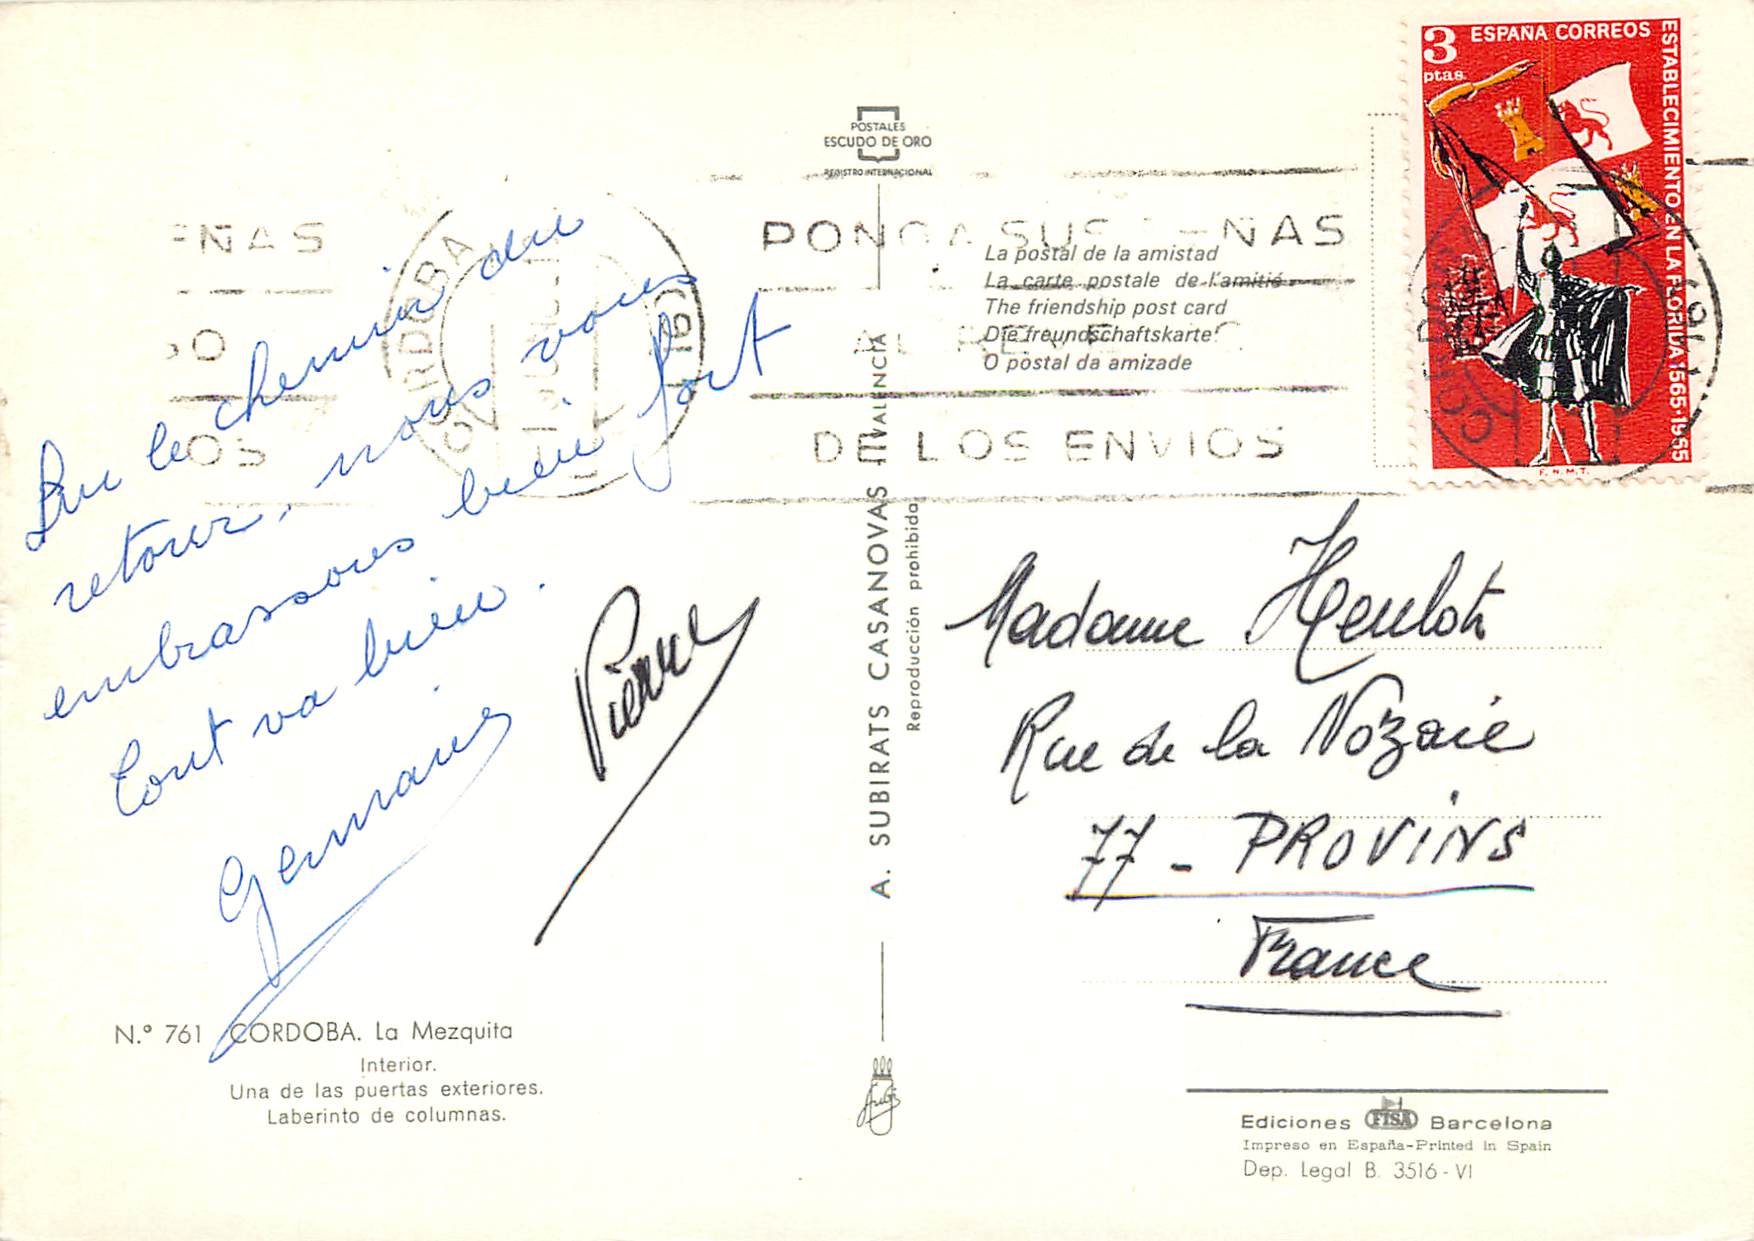 Sur le chemin du
retour, nous vous
embrassons bien fort
Tout va bien.
Germaine
Pierre
N.º 761 CORDOBA. La Mezquita
Interior.
Una de las puertas exteriores.
Laberinto de columnas.
POSTALES
ESCUDO DE ORO
REGISTRO INTERNACIONAL
A. SUBIRATS CASANOVAS - VALENCIA
Reproducción prohibida
ÑAS
OS
CORDOBA
PONGA SUS SEÑAS
AL REVERSO
DE LOS ENVIOS
La postal de la amistad
La carte postale de l'amitié
The friendship post card
Die freundschaftskarte
O postal da amizade
3 ESPAÑA CORREOS
ptas.
ESTABLECIMIENTO EN LA FLORIDA 1565-1965
F.N.M.T.
CORDOBA
Madame Heulot
Rue de la Nozaie
77 - PROVINS
France
Ediciones FISA Barcelona
Impreso en España-Printed in Spain
Dep. Legal B. 3516 - VI